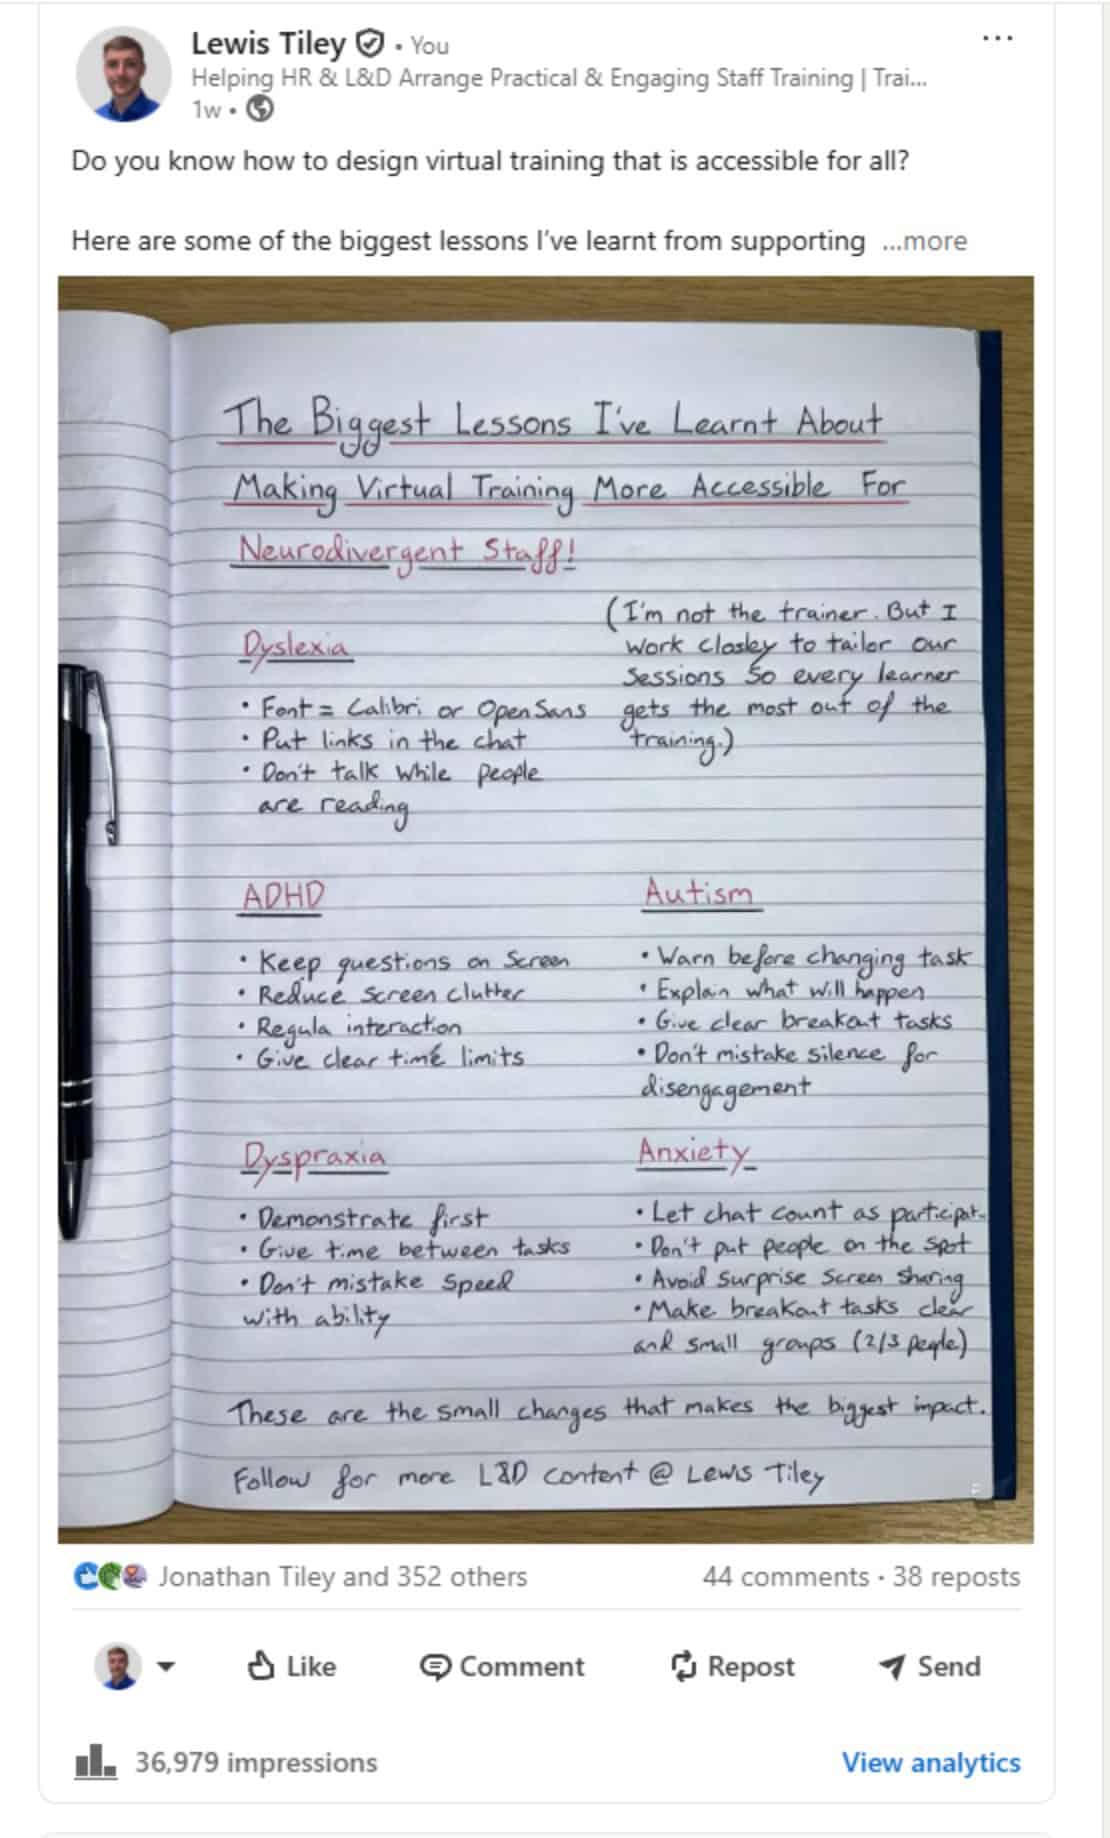 Lewis Tiley • You
Helping HR & L&D Arrange Practical & Engaging Staff Training | Trai...
1w •
Do you know how to design virtual training that is accessible for all?
Here are some of the biggest lessons I've learnt from supporting ...more
The Biggest Lessons I've Learnt About
Making Virtual Training More Accessible For
Neurodivergent Staff!
(I'm not the trainer. But I
work closley to tailor our
sessions so every learner
gets the most out of the
training.)
Dyslexia
• Font = Calibri or Open Sans
• Put links in the chat
• Don't talk while people
are reading
ADHD
• Keep questions on screen
• Reduce screen clutter
• Regula interaction
• Give clear time limits
Autism
• Warn before changing task
• Explain what will happen
• Give clear breakout tasks
• Don't mistake silence for
disengagement
Dyspraxia
• Demonstrate first
• Give time between tasks
• Don't mistake speed
with ability
Anxiety
• Let chat count as participat.
• Don't put people on the spot
• Avoid surprise screen sharing
• Make breakout tasks clear
and small groups (2/3 people)
These are the small changes that makes the biggest impact.
Follow for more L&D content @ Lewis Tiley
Jonathan Tiley and 352 others
44 comments • 38 reposts
Like
Comment
Repost
Send
36,979 impressions
View analytics